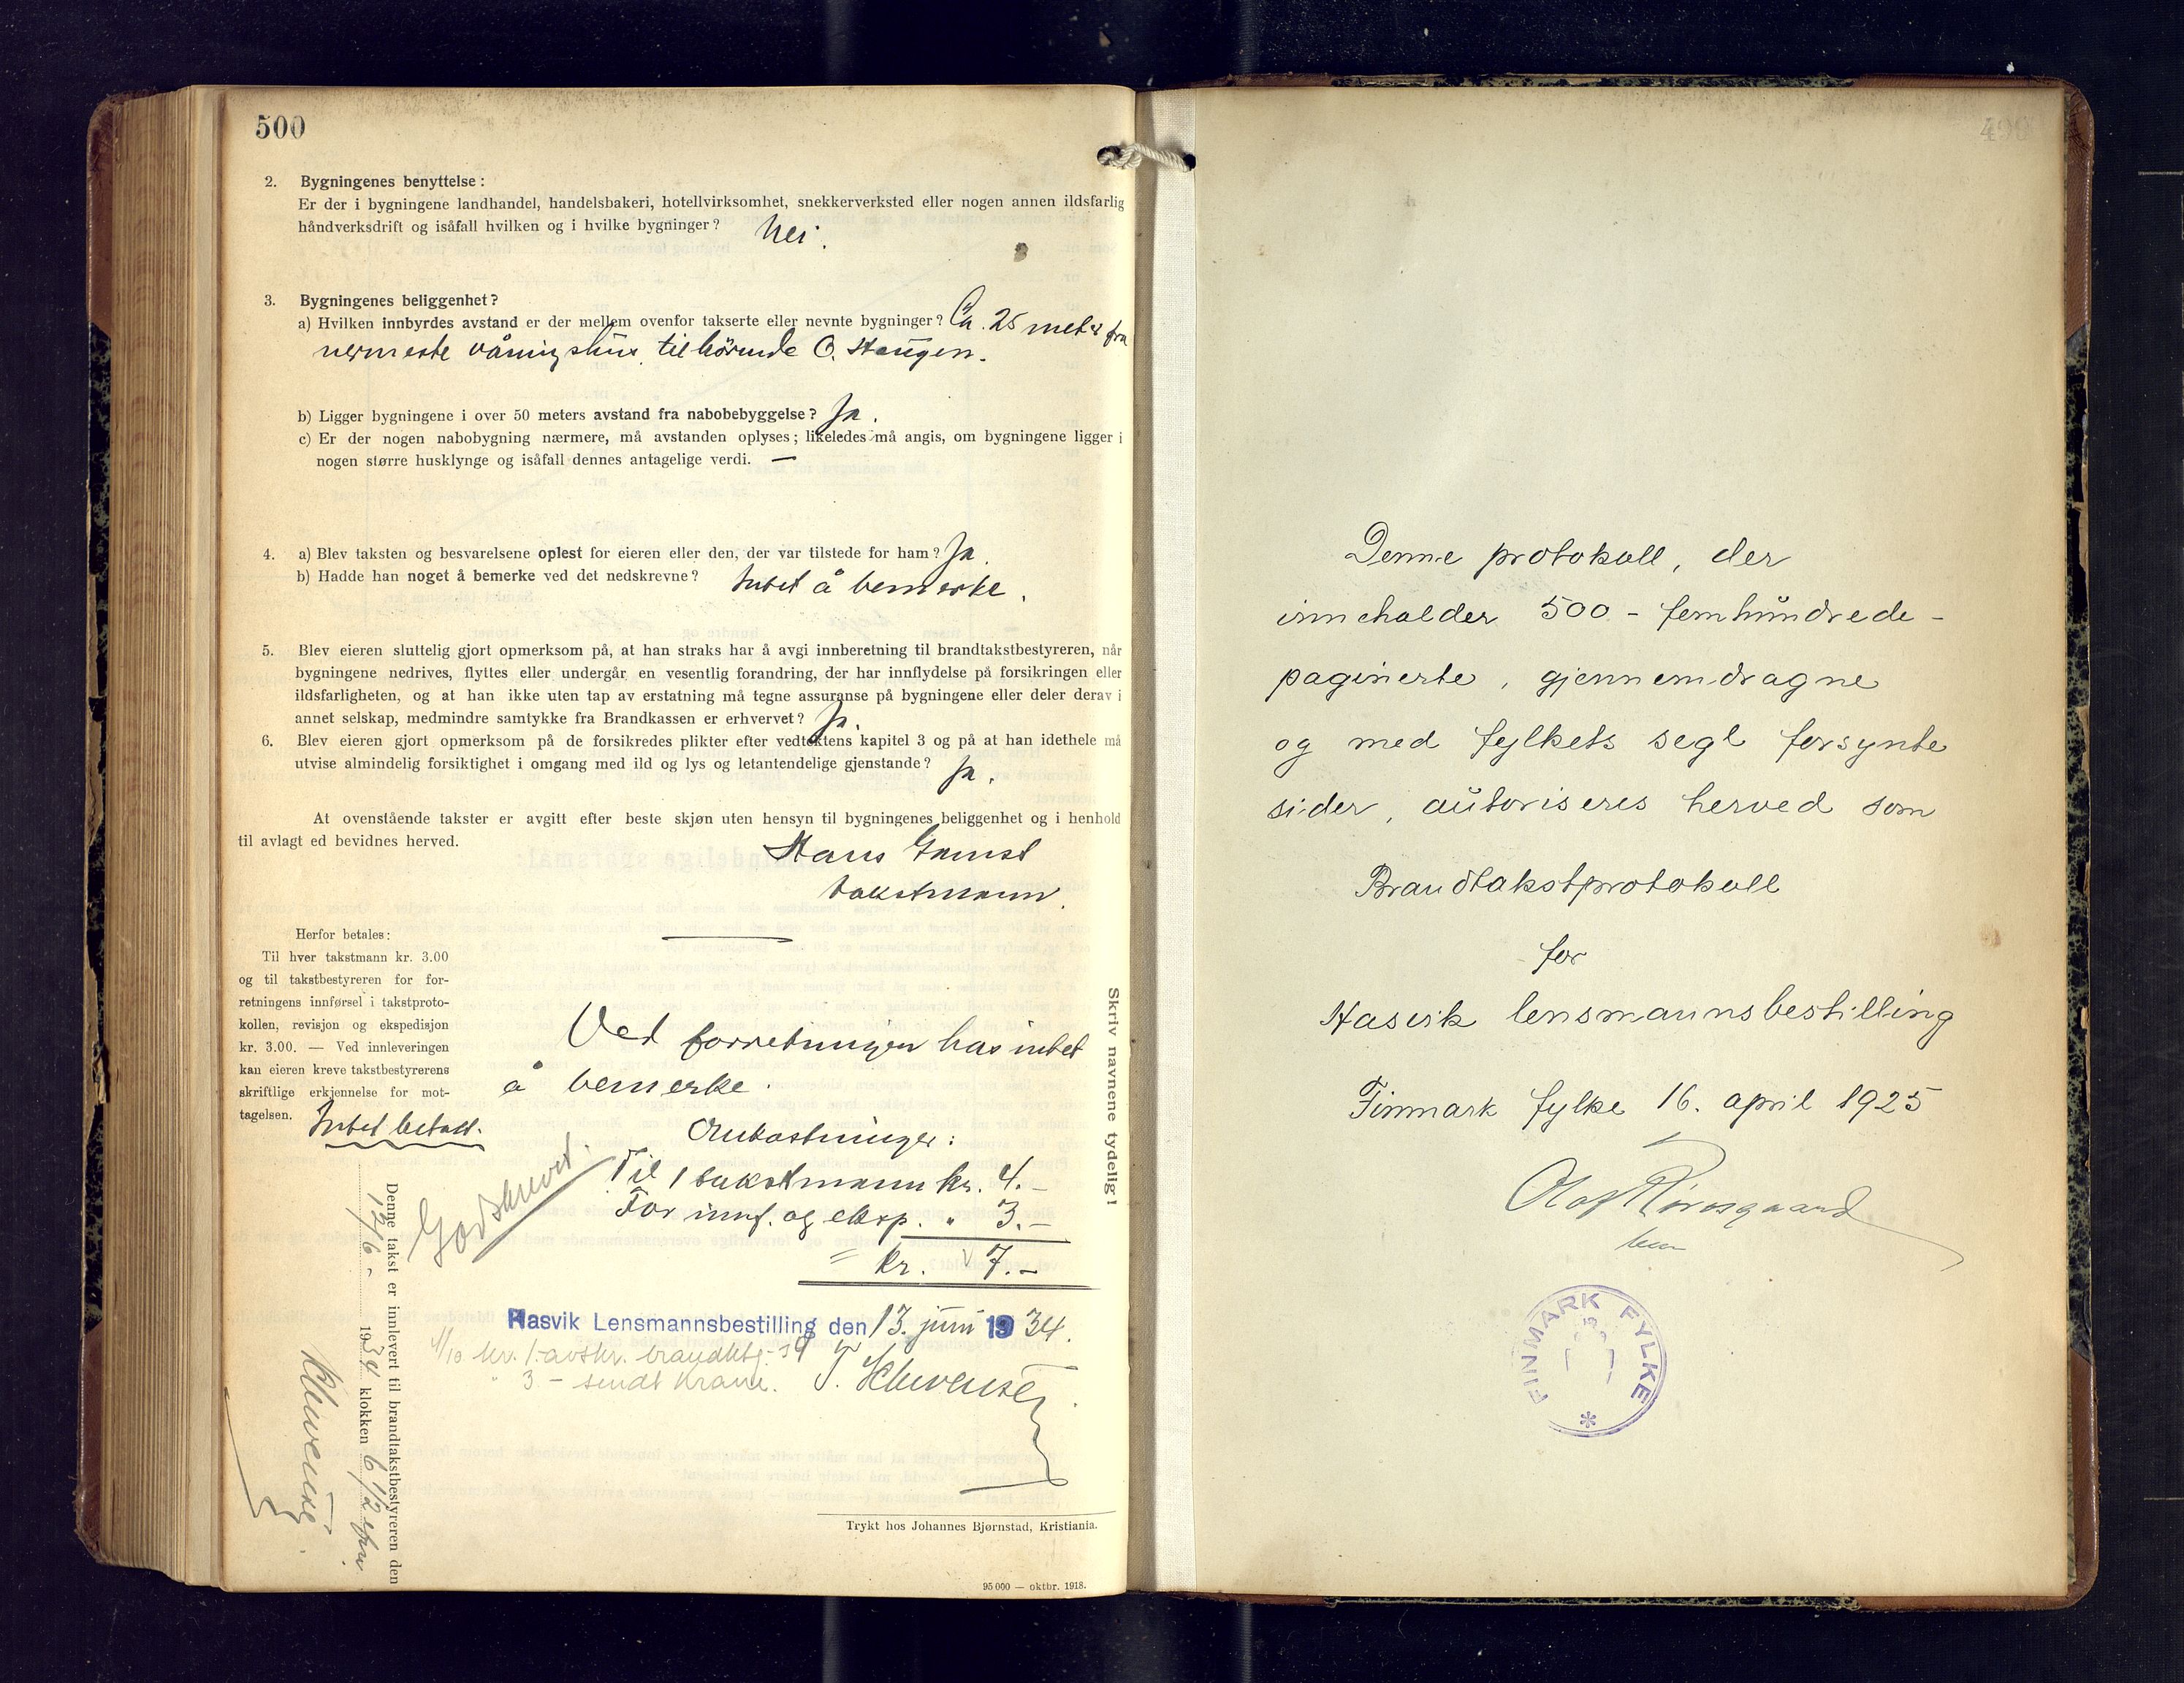 500
2. Bygningenes benyttelse:
Er der i bygningene landhandel, handelsbakeri, hotellvirksomhet, snekkerverksted eller nogen annen ildsfarlig
håndverksdrift og isåfall hvilken og i hvilke bygninger? Nei.
3. Bygningenes beliggenhet?
a) Hvilken innbyrdes avstand er der mellem ovenfor takserte eller nevnte bygninger? Ca. 25 meter fra
nermeste våningshus tilhörende O. Haugen.
b) Ligger bygningene i over 50 meters avstand fra nabobebyggelse? Ja.
c) Er der nogen nabobygning nærmere, må avstanden oplyses; likeledes må angis, om bygningene ligger i
nogen større husklynge og isåfall dennes antagelige verdi. —
4. a) Blev taksten og besvarelsene oplest for eieren eller den, der var tilstede for ham? Ja.
b) Hadde han noget å bemerke ved det nedskrevne? Intet å bemerke.
5. Blev eieren sluttelig gjort opmerksom på, at han straks har å avgi innberetning til brandtakstbestyreren, når
bygningene nedrives, flyttes eller undergår en vesentlig forandring, der har innflydelse på forsikringen eller
ildsfarligheten, og at han ikke uten tap av erstatning må tegne assuranse på bygningene eller deler derav i
annet selskap, medmindre samtykke fra Brandkassen er erhvervet? Ja.
6. Blev eieren gjort opmerksom på de forsikredes plikter efter vedtektens kapitel 3 og på at han idethele må
utvise almindelig forsiktighet i omgang med ild og lys og letantendelige gjenstande? Ja.
At ovenstående takster er avgitt efter beste skjøn uten hensyn til bygningenes beliggenhet og i henhold
til avlagt ed bevidnes herved.
Hans
takstmann.
Herfor betales:
Til hver takstmann kr. 3.00
og til takstbestyreren for for-
retningens innførsel i takstproto-
kollen, revisjon og ekspedisjon
kr. 3.00. — Ved innleveringen
kan eieren kreve takstbestyrerens
skriftlige erkjennelse for mot-
tagelsen. Intet betalt.
Skriv navnene tydelig!
Ved forretningen has intet
å bemerke.
Omkostninger:
Til 1 takstmann kr. 4.-
For innf. og eksp. " 3.-
= kr. 7.-
Godskrevet.
Hasvik Lensmannsbestilling den 13. juni 1934.
1/10 kr. 1.- avskr. brandktg.
" 3 - sendt
Denne takst er innlevert til brandtakstbestyreren den
12/6 - 1934 klokken 6 1/2 e/m.
Trykt hos Johannes Bjørnstad, Kristiania.
95 000 — oktbr. 1918.
499
Denne protokoll, der
inneholder 500 - femhundrede -
paginerte, gjennemdragne
og med fylkets segl forsynte
sider, autoriseres herved som
Brandtakstprotokoll
for
Hasvik lensmannsbestilling
Finmark fylke 16. april 1925
Olaf
FINMARK FYLKE
*